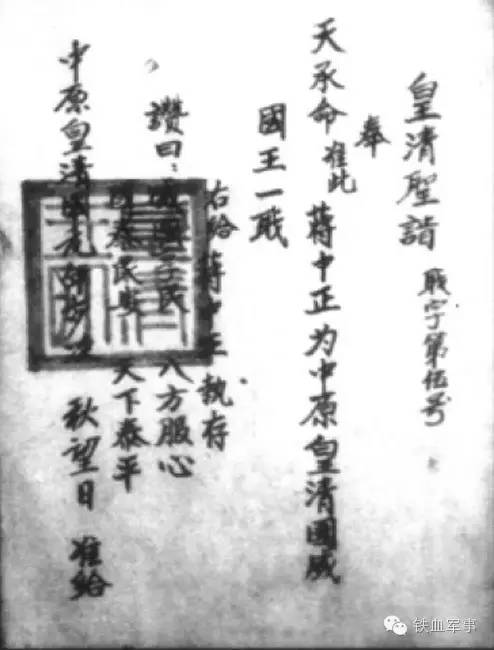 皇清聖诣
職字第伍号
奉
天承命 准此 蒋中正为中原皇清國威
國王一職
右给蒋中正執存
讃曰：民 八方服心
國泰民安 天下泰平
中原皇清國元 秋望日 准给
铁血军事